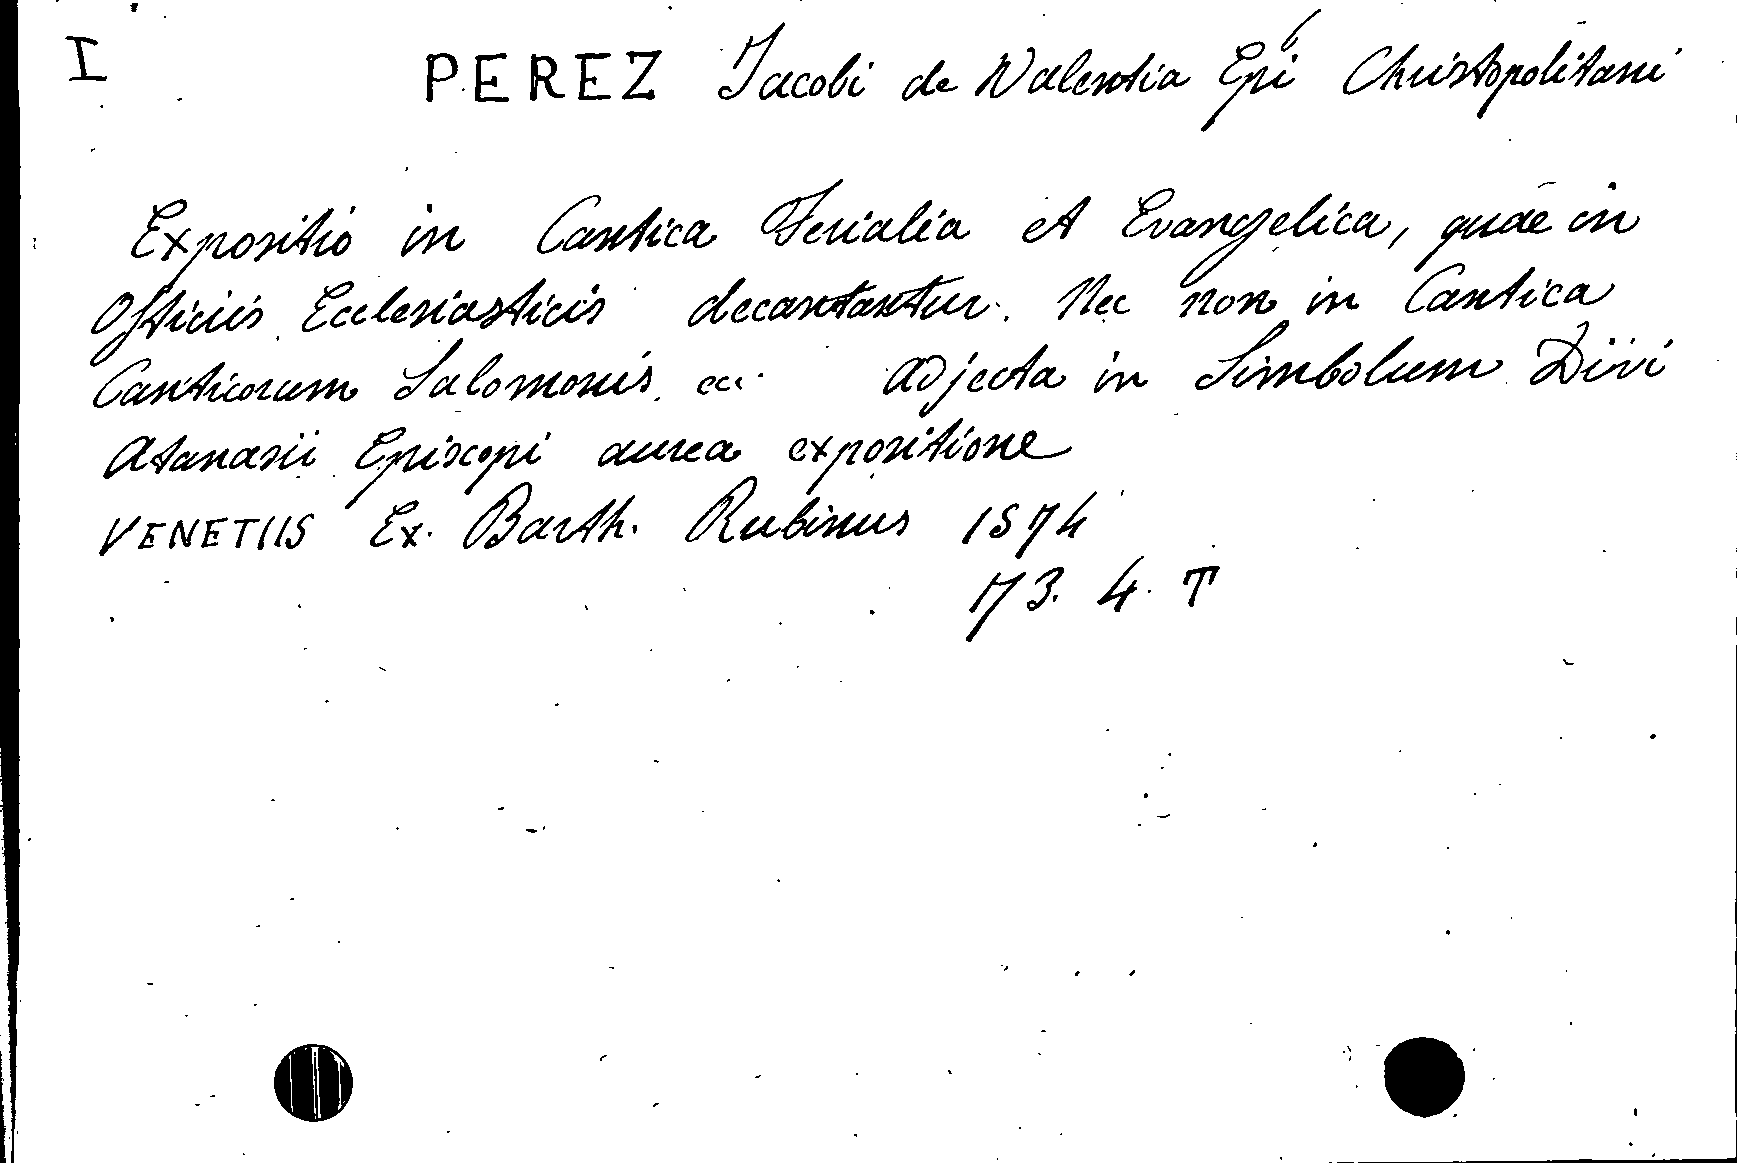 I PEREZ Jacobi de Valentia Epi Christopolitani
Expositio in Cantica Ferialia et Evangelica, quae in
Officiis Ecclesiasticis decantantur. Nec non in Cantica
Canticorum Salomonis ecc. Adjecta in Simbolum Divi
Atanasii Episcopi aurea expositione
VENETIIS Ex. Barth. Rubinus 1574
73. 4. T